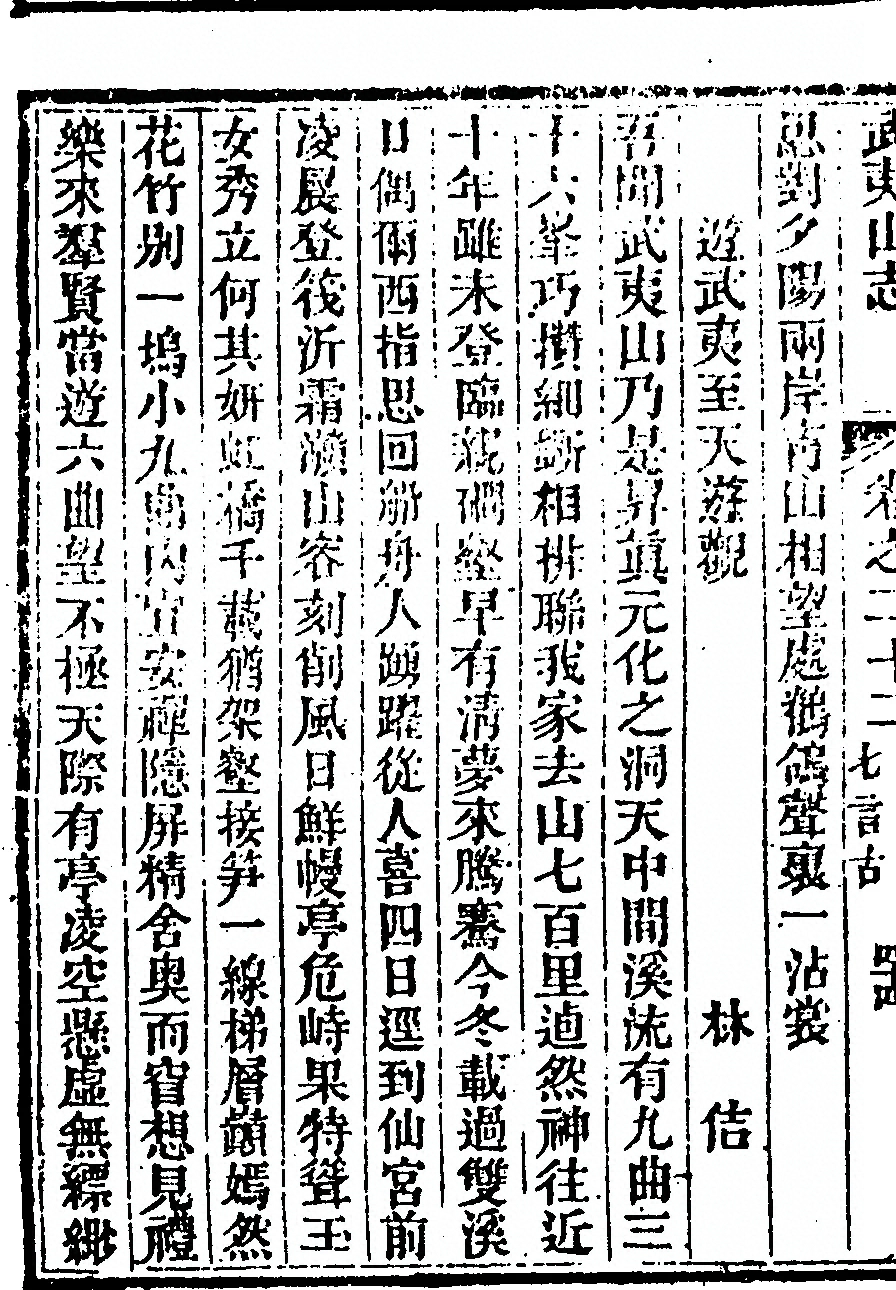 武夷山志 卷之二十二 七言古
忽對夕陽兩岸青山相望處鶴鴿聲裏一沾裳
遊武夷至天遊觀 林佶
吾聞武夷山乃是昇真元化之洞天中間溪流有九曲三
十六峯巧攢細斷相排聯我家去山七百里逌然神往近
十年雖未登臨親磵壑早有清夢來騰騫今冬載過雙溪
口偶爾西指思回船舟人踴躍從人喜四日逕到仙宮前
凌晨登筏泝霜瀨山容刻削風日鮮幔亭危峙果特聳玉
女秀立何其妍虹橋千載猶架壑接笋一線梯層巔嫣然
花竹别一塢小九曲内宜安禪隱屏精舍奥而窅想見禮
樂來羣賢當遊六曲望不極天際有亭凌空懸虚無縹緲